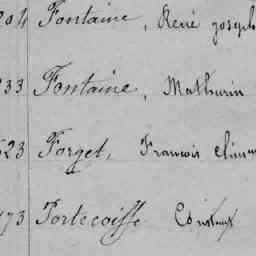 204 Fontaine, René joseph
233 Fontaine, Mathurin
523 Forget, François
173 Fortecoiffe Constant